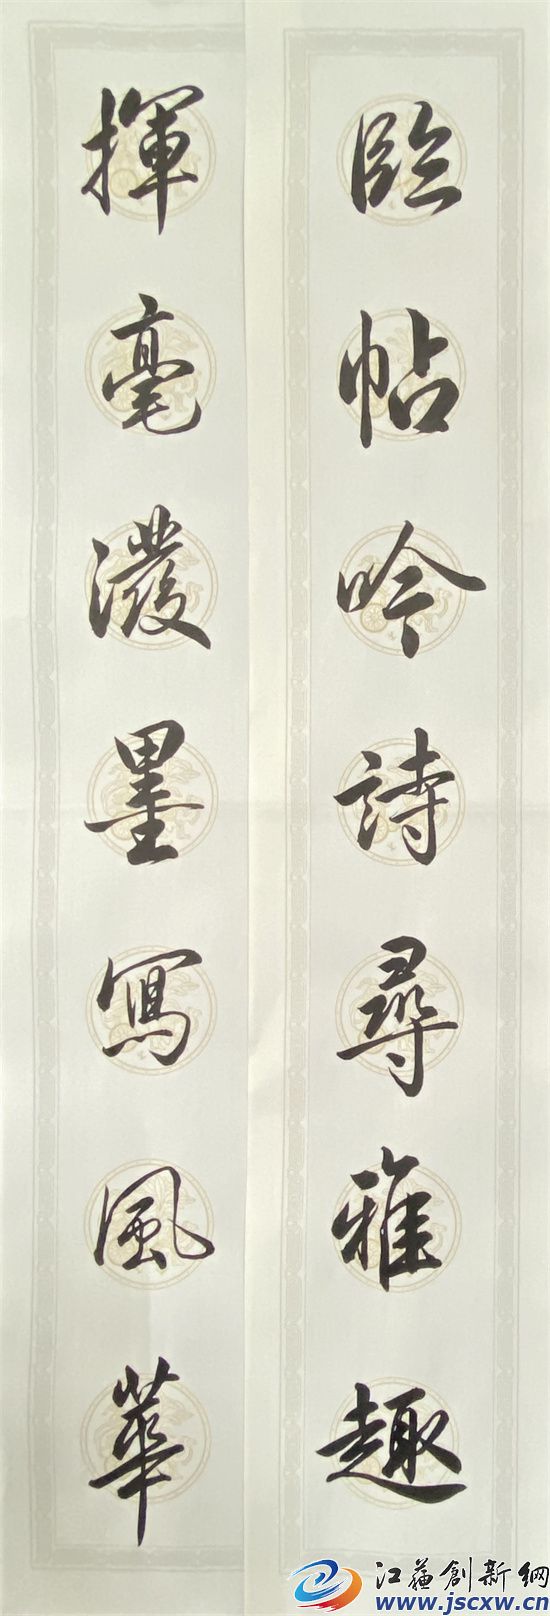 臨帖吟詩尋雅趣
揮毫潑墨寫風華
江蘇創新網
www.jscxw.cn